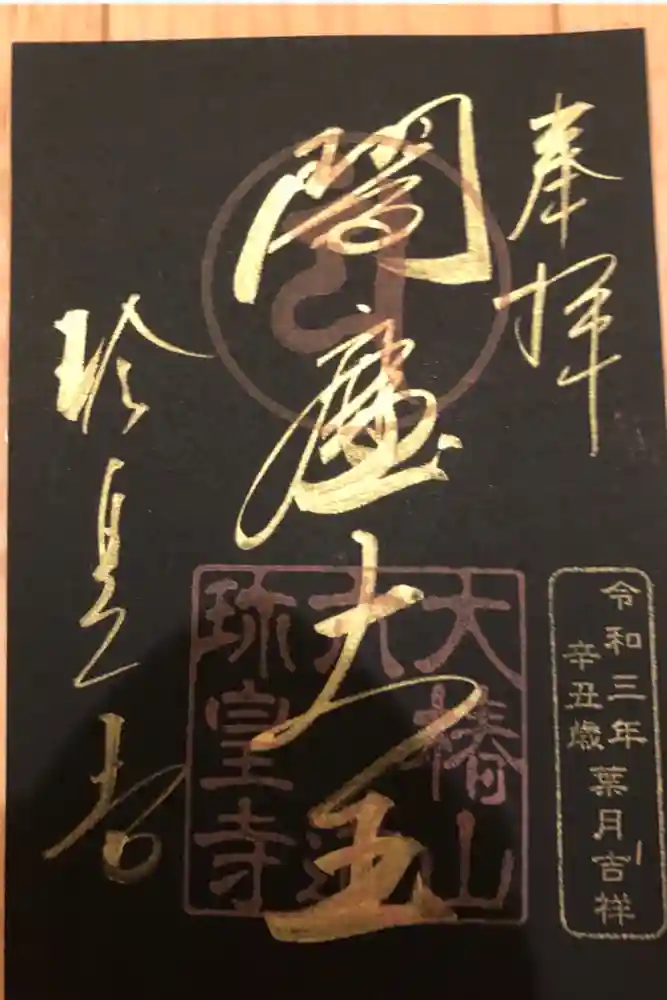 奉拝
閻魔大王
珍皇寺
大椿山
六道
珍皇寺
令和三年
辛丑歳
葉月吉祥